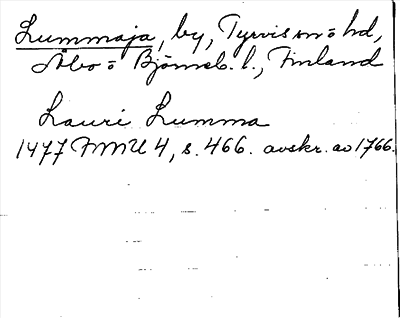 Lummaja, by, Tyrvis sn o hd,
Åbo o Björneb. l., Finland
Lauri Lumma
1477 FMU 4, s. 466. avskr. av 1766.